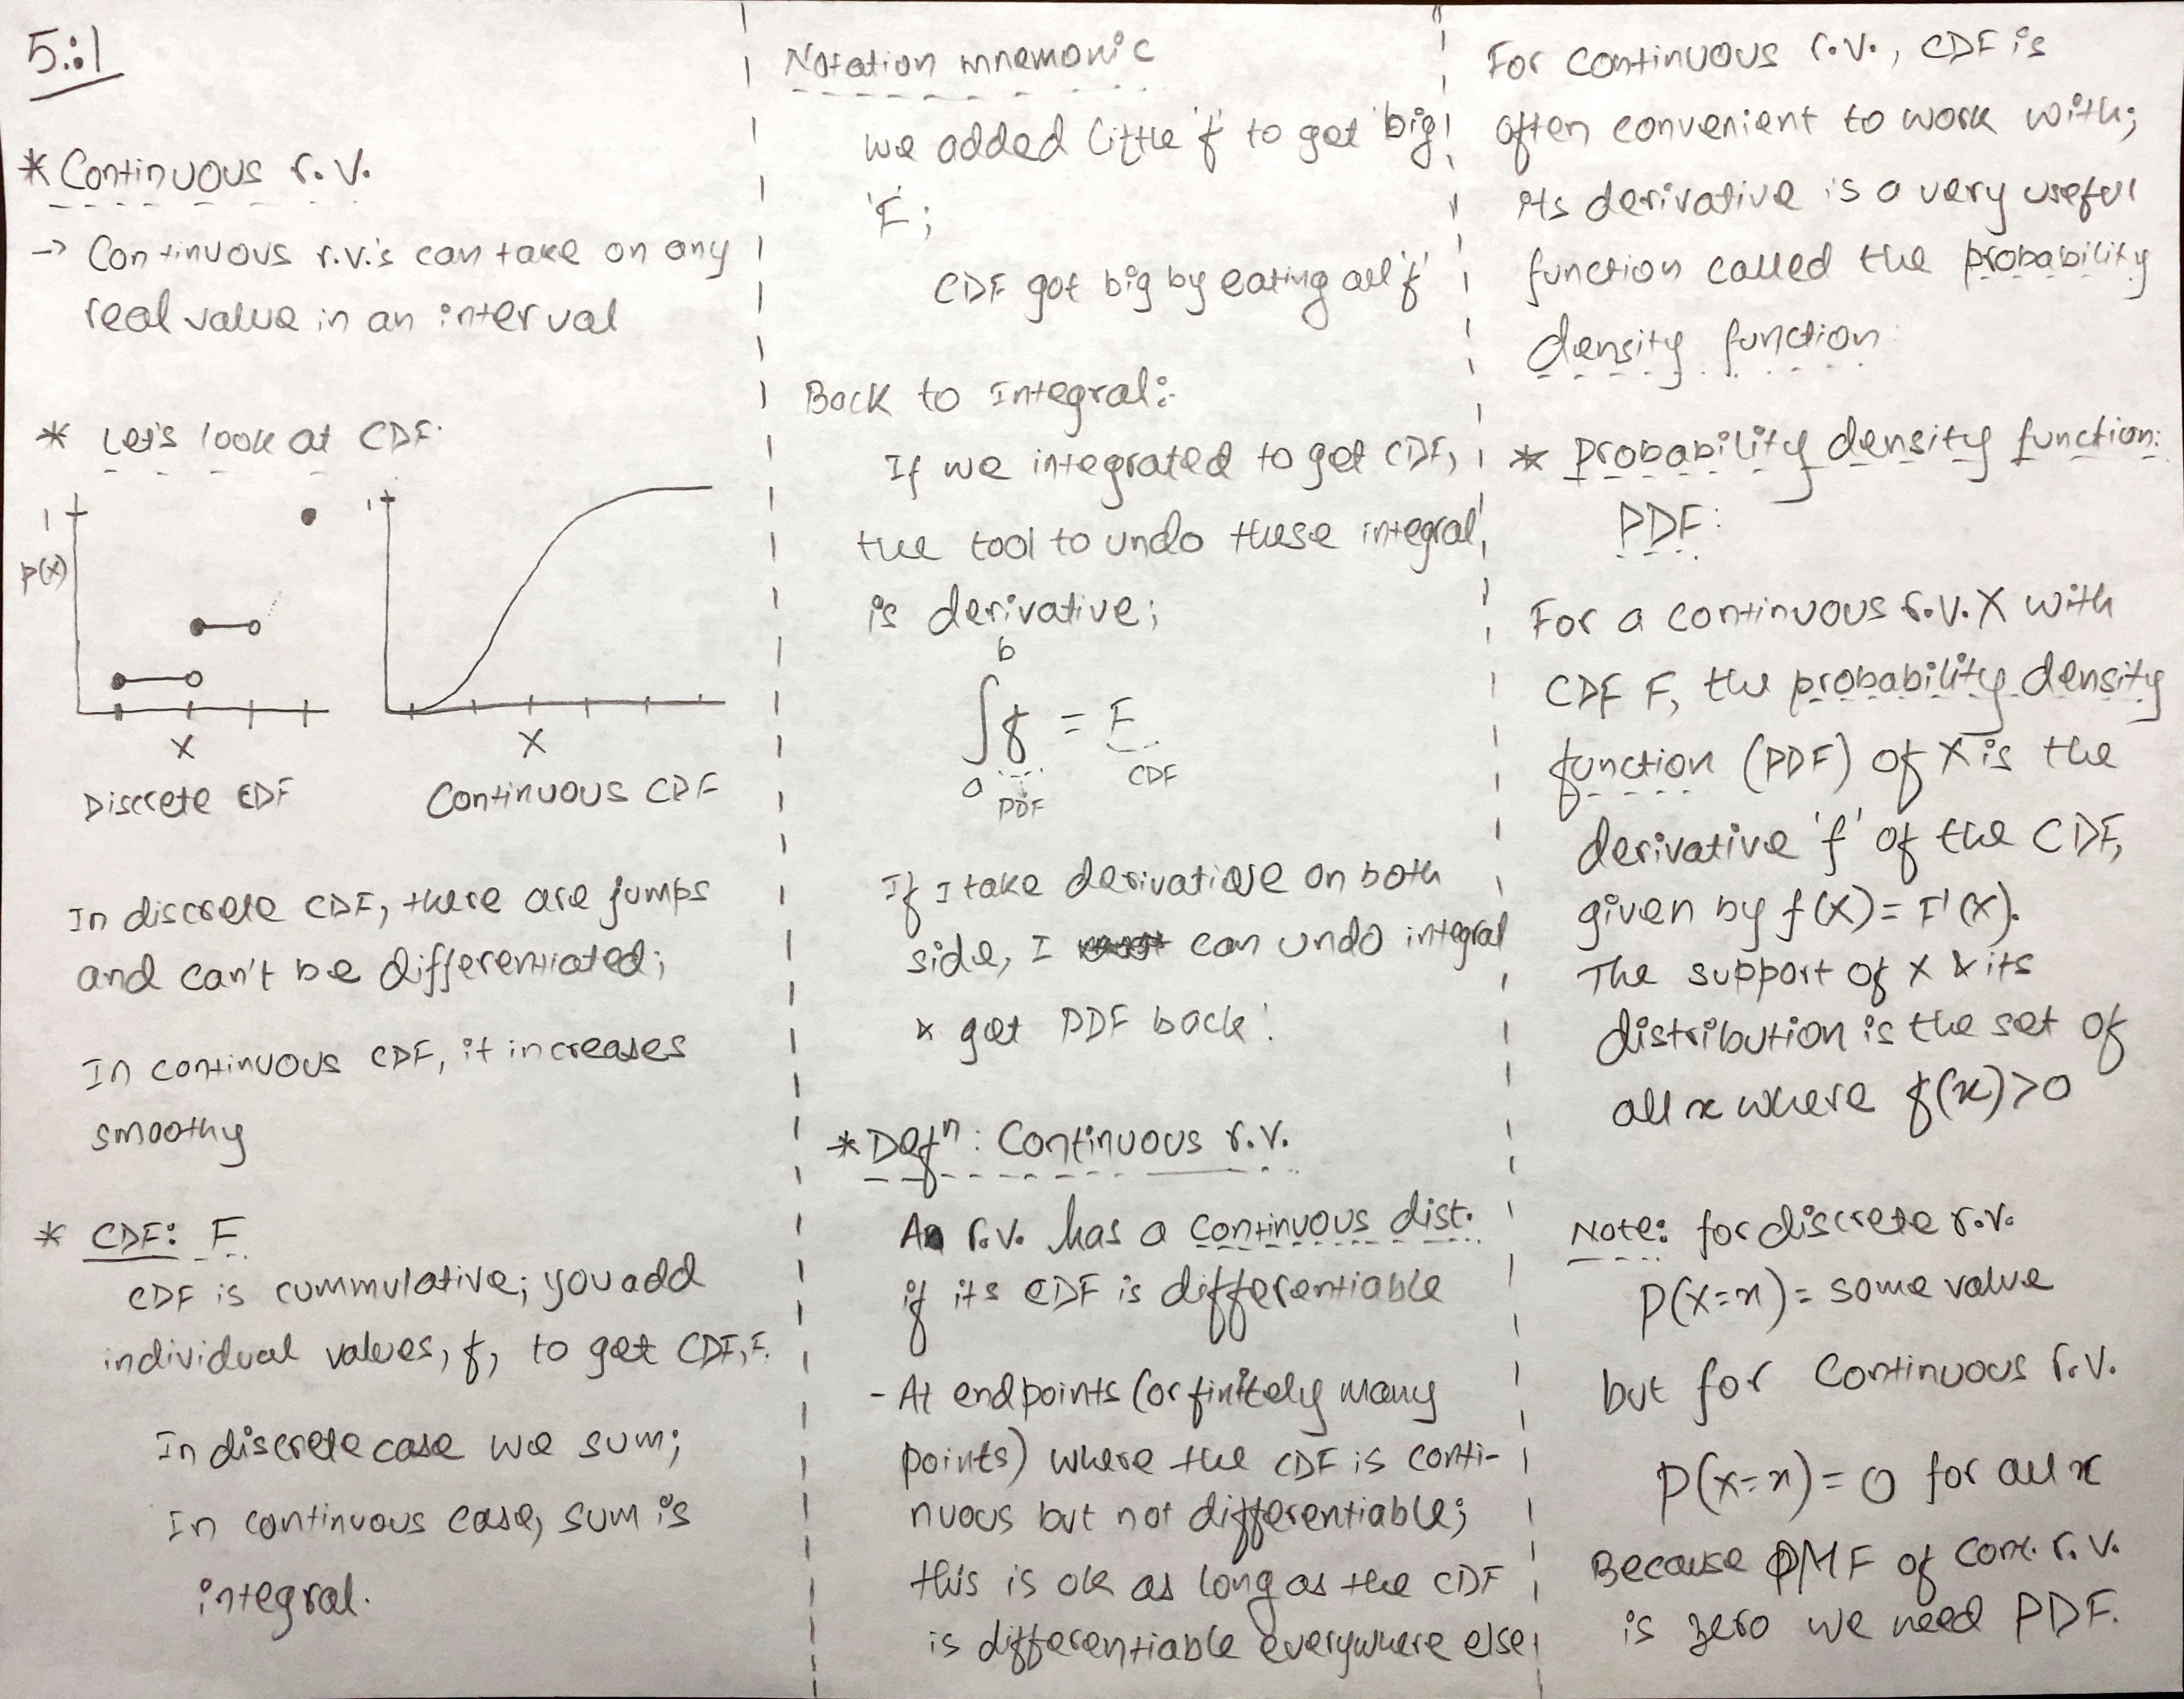 5:1
* Continuous r.v.
→ Continuous r.v.'s can take on any
real value in an interval
* Let's look at CDF
1
p(x)
X
Discrete CDF
1
X
Continuous CDF
In discrete CDF, there are jumps
and can't be differentiated;
In continuous CDF, it increases
smoothy
* CDF: F
CDF is cummulative; you add
individual values, f, to get CDF, F.
In discrete case we sum;
In continuous case, sum is
integral.
Notation mnemonic
we added little 'f' to get 'big
'F';
CDF got big by eating all 'f'
Back to Integral:-
If we integrated to get CDF,
the tool to undo these integral
is derivative;
b
∫f = F
a PDF CDF
If I take derivative on both
side, I can undo integral
& get PDF back!
* Defⁿ: Continuous r.v.
An r.v. has a continuous dist.
if its CDF is differentiable
- At endpoints (or finitely many
points) where the CDF is conti-
nuous but not differentiable;
this is ok as long as the CDF
is differentiable everywhere else
For continuous r.v., CDF is
often convenient to work with;
its derivative is a very useful
function called the probability
density function
* Probability density function:
PDF:
For a continuous r.v. X with
CDF F, the probability density
function (PDF) of X is the
derivative 'f' of the CDF,
given by f(x) = F'(x).
The support of X & its
distribution is the set of
all x where f(x)>0
Note: for discrete r.v.
P(X=x) = some value
but for continuous r.v.
P(X=x) = 0 for all x
Because PMF of cont. r.v.
is zero we need PDF.